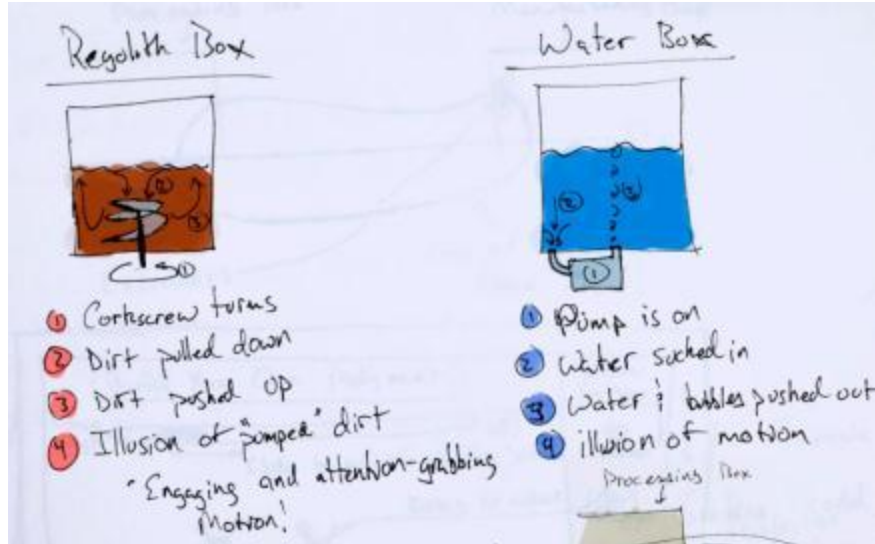 Regolith Box
① Corkscrew turns
② Dirt pulled down
③ Dirt pushed up
④ Illusion of "pumped" dirt
"Engaging and attention-grabbing
Motion!
Water Box
① Pump is on
② Water sucked in
③ Water & bubbles pushed out
④ illusion of motion
Processing Box
①
②
③
①
②
③